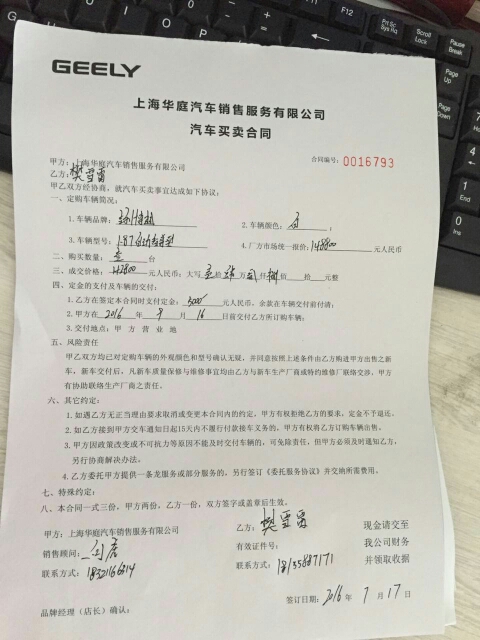 GEELY
上海华庭汽车销售服务有限公司
汽车买卖合同
合同编号: 0016793
甲方: 上海华庭汽车销售服务有限公司
乙方:
甲乙双方经协商, 就汽车买卖事宜达成如下协议:
一、定购车辆简况:
1.车辆品牌: 2.车辆颜色:
3.车辆型号: 4.厂方市场统一报价: 148800 元人民币
二、购买数量: 壹 台
三、成交价格: 142800 元人民币; 大写 拾 万 仟 捌 佰 拾 元整
四、定金的支付及车辆的交付:
1.乙方在签定本合同时支付定金: 5000 元人民币, 余款在车辆交付前付清;
2.甲方在 2016 年 9 月 16 日前交付乙方所订购车辆;
3.交付地点: 甲 方 营 业 地
五、风险责任
甲乙双方均已对定购车辆的外观颜色和型号确认无疑, 并同意按照上述条件由乙方购进甲方出售之新
车, 新车交付后, 凡新车质量保修与维修事宜均由乙方与新车生产厂商或特约维修厂联络交涉, 甲方
有协助联络生产厂商之责任。
六、其它约定:
1.如遇乙方无正当理由要求取消或变更本合同内的约定, 甲方有权拒绝乙方的要求, 定金不予退还。
2.如乙方接到甲方交车通知日起15天内不履行付款接车义务的, 甲方有权将乙方订购车辆出售。
3.甲方因政策改变或不可抗力等原因不能及时交付车辆的, 可免除责任, 但甲方必须及时通知乙方,
另行协商解决办法。
4.乙方委托甲方提供一条龙服务或部分服务的, 另行签订《委托服务协议》并交纳所需费用。
七、特殊约定:
八、本合同一式三份, 甲方两份, 乙方一份, 双方签字或盖章后生效。
甲方: 上海华庭汽车销售服务有限公司
销售顾问:
联系方式:
乙方:
有效证件号:
联系方式: 18135887171
现金请交至
我公司财务
并领取收据
签订日期: 2016 年 7 月 17 日
品牌经理（店长）确认: